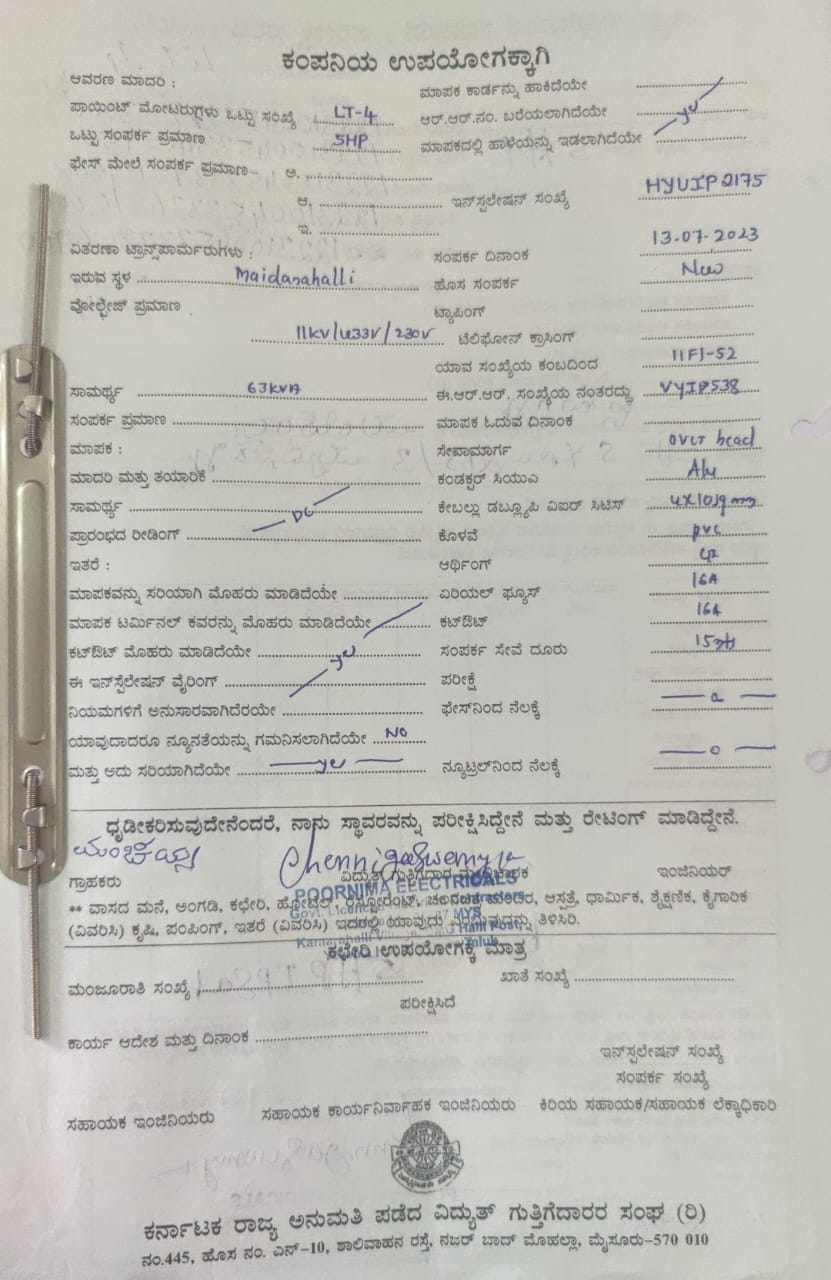 ಕಂಪನಿಯ ಉಪಯೋಗಕ್ಕಾಗಿ
ಆವರಣ ಮಾದರಿ : ಮಾಪಕ ಕಾರ್ಡನ್ನು ಹಾಕಿದೆಯೇ ....................
ಪಾಯಿಂಟ್ ಮೋಟರುಗಳು ಒಟ್ಟು ಸಂಖ್ಯೆ LT-4 ಆರ್.ಆರ್.ನಂ. ಬರೆಯಲಾಗಿದೆಯೇ yes
ಒಟ್ಟು ಸಂಪರ್ಕ ಪ್ರಮಾಣ 5HP ಮಾಪಕದಲ್ಲಿ ಹಾಳೆಯನ್ನು ಇಡಲಾಗಿದೆಯೇ ....................
ಫೇಸ್ ಮೇಲೆ ಸಂಪರ್ಕ ಪ್ರಮಾಣ ಅ. ....................
ಆ. .................... ಇನ್‌ಸ್ಟಲೇಷನ್ ಸಂಖ್ಯೆ HYUIP2175
ಇ. ....................
ವಿತರಣಾ ಟ್ರಾನ್ಸ್‌ಪಾರ್ಮರುಗಳು : ಸಂಪರ್ಕ ದಿನಾಂಕ 13.07.2023
ಇರುವ ಸ್ಥಳ Maidanahalli ಹೊಸ ಸಂಪರ್ಕ New
ವೋಲ್ಟೇಜ್ ಪ್ರಮಾಣ ಟ್ಯಾಪಿಂಗ್ ....................
11kV/433V/230V ಟೆಲಿಫೋನ್ ಕ್ರಾಸಿಂಗ್ ....................
ಯಾವ ಸಂಖ್ಯೆಯ ಕಂಬದಿಂದ 11FJ-52
ಸಾಮರ್ಥ್ಯ 63KVA ಈ.ಆರ್.ಆರ್. ಸಂಖ್ಯೆಯ ನಂತರದ್ದು VYIP538
ಸಂಪರ್ಕ ಪ್ರಮಾಣ .................... ಮಾಪಕ ಓದುವ ದಿನಾಂಕ ....................
ಮಾಪಕ : ಸೇವಾಮಾರ್ಗ over head
ಮಾದರಿ ಮತ್ತು ತಯಾರಿಕೆ .................... ಕಂಡಕ್ಟರ್ ಸಿಯುಎ Alu
ಸಾಮರ್ಥ್ಯ .................... ಕೇಬಲ್ಲು ಡಬ್ಲ್ಯೂಪಿ ವಿಐರ್ ಸಿಟಿಸ್ 4x10sqmm
ಪ್ರಾರಂಭದ ರೀಡಿಂಗ್ .................... ಕೊಳವೆ pvc
ಇತರೆ : ಆರ್ಥಿಂಗ್
ಮಾಪಕವನ್ನು ಸರಿಯಾಗಿ ಮೊಹರು ಮಾಡಿದೆಯೇ .................... ಏರಿಯಲ್ ಫ್ಯೂಸ್ 16A
ಮಾಪಕ ಟರ್ಮಿನಲ್ ಕವರನ್ನು ಮೊಹರು ಮಾಡಿದೆಯೇ .................... ಕಟ್‌ಔಟ್ 16A
ಕಟ್‌ಔಟ್ ಮೊಹರು ಮಾಡಿದೆಯೇ yes ಸಂಪರ್ಕ ಸೇವೆ ದೂರು 15mts
ಈ ಇನ್‌ಸ್ಟಲೇಷನ್ ವೈರಿಂಗ್ .................... ಪರೀಕ್ಷೆ ....................
ನಿಯಮಗಳಿಗೆ ಅನುಸಾರವಾಗಿದೆರಯೇ .................... ಫೇಸ್‌ನಿಂದ ನೆಲಕ್ಕೆ
ಯಾವುದಾದರೂ ನ್ಯೂನತೆಯನ್ನು ಗಮನಿಸಲಾಗಿದೆಯೇ NO
ಮತ್ತು ಅದು ಸರಿಯಾಗಿದೆಯೇ yes ನ್ಯೂಟ್ರಲ್‌ನಿಂದ ನೆಲಕ್ಕೆ — 0 —
ಧೃಡೀಕರಿಸುವುದೇನೆಂದರೆ, ನಾನು ಸ್ಥಾವರವನ್ನು ಪರೀಕ್ಷಿಸಿದ್ದೇನೆ ಮತ್ತು ರೇಟಿಂಗ್ ಮಾಡಿದ್ದೇನೆ.
Chennigaswamy
ಗ್ರಾಹಕರು ವಿದ್ಯುತ್ ಗುತ್ತಿಗೆದಾರ ಇಂಜಿನಿಯರ್
POORNIMA ELECTRICALS
** ವಾಸದ ಮನೆ, ಅಂಗಡಿ, ಕಛೇರಿ, ಹೋಟೆಲ್, ರೆಸ್ಟೋರೆಂಟ್, ಚಲನಚಿತ್ರ ಮಂದಿರ, ಆಸ್ಪತ್ರೆ, ಧಾರ್ಮಿಕ, ಶೈಕ್ಷಣಿಕ, ಕೈಗಾರಿಕ
(ವಿವರಿಸಿ) ಕೃಷಿ, ಪಂಪಿಂಗ್, ಇತರೆ (ವಿವರಿಸಿ) ಇದರಲ್ಲಿ ಯಾವುದು ಎಂಬುವುದನ್ನು ತಿಳಿಸಿರಿ.
ಕಛೇರಿ ಉಪಯೋಗಕ್ಕೆ ಮಾತ್ರ
ಮಂಜೂರಾತಿ ಸಂಖ್ಯೆ .................... ಖಾತೆ ಸಂಖ್ಯೆ ....................
ಪರೀಕ್ಷಿಸಿದೆ
ಕಾರ್ಯ ಆದೇಶ ಮತ್ತು ದಿನಾಂಕ ....................
ಇನ್‌ಸ್ಟಲೇಷನ್ ಸಂಖ್ಯೆ
ಸಂಪರ್ಕ ಸಂಖ್ಯೆ
ಸಹಾಯಕ ಇಂಜಿನಿಯರು ಸಹಾಯಕ ಕಾರ್ಯನಿರ್ವಾಹಕ ಇಂಜಿನಿಯರು ಕಿರಿಯ ಸಹಾಯಕ/ಸಹಾಯಕ ಲೆಕ್ಕಾಧಿಕಾರಿ
ಕರ್ನಾಟಕ ರಾಜ್ಯ ಅನುಮತಿ ಪಡೆದ ವಿದ್ಯುತ್ ಗುತ್ತಿಗೆದಾರರ ಸಂಘ (ರಿ)
ನಂ.445, ಹೊಸ ನಂ. ಎನ್-10, ಶಾಲಿವಾಹನ ರಸ್ತೆ, ನಜರ್ ಬಾದ್ ಮೊಹಲ್ಲಾ, ಮೈಸೂರು-570 010